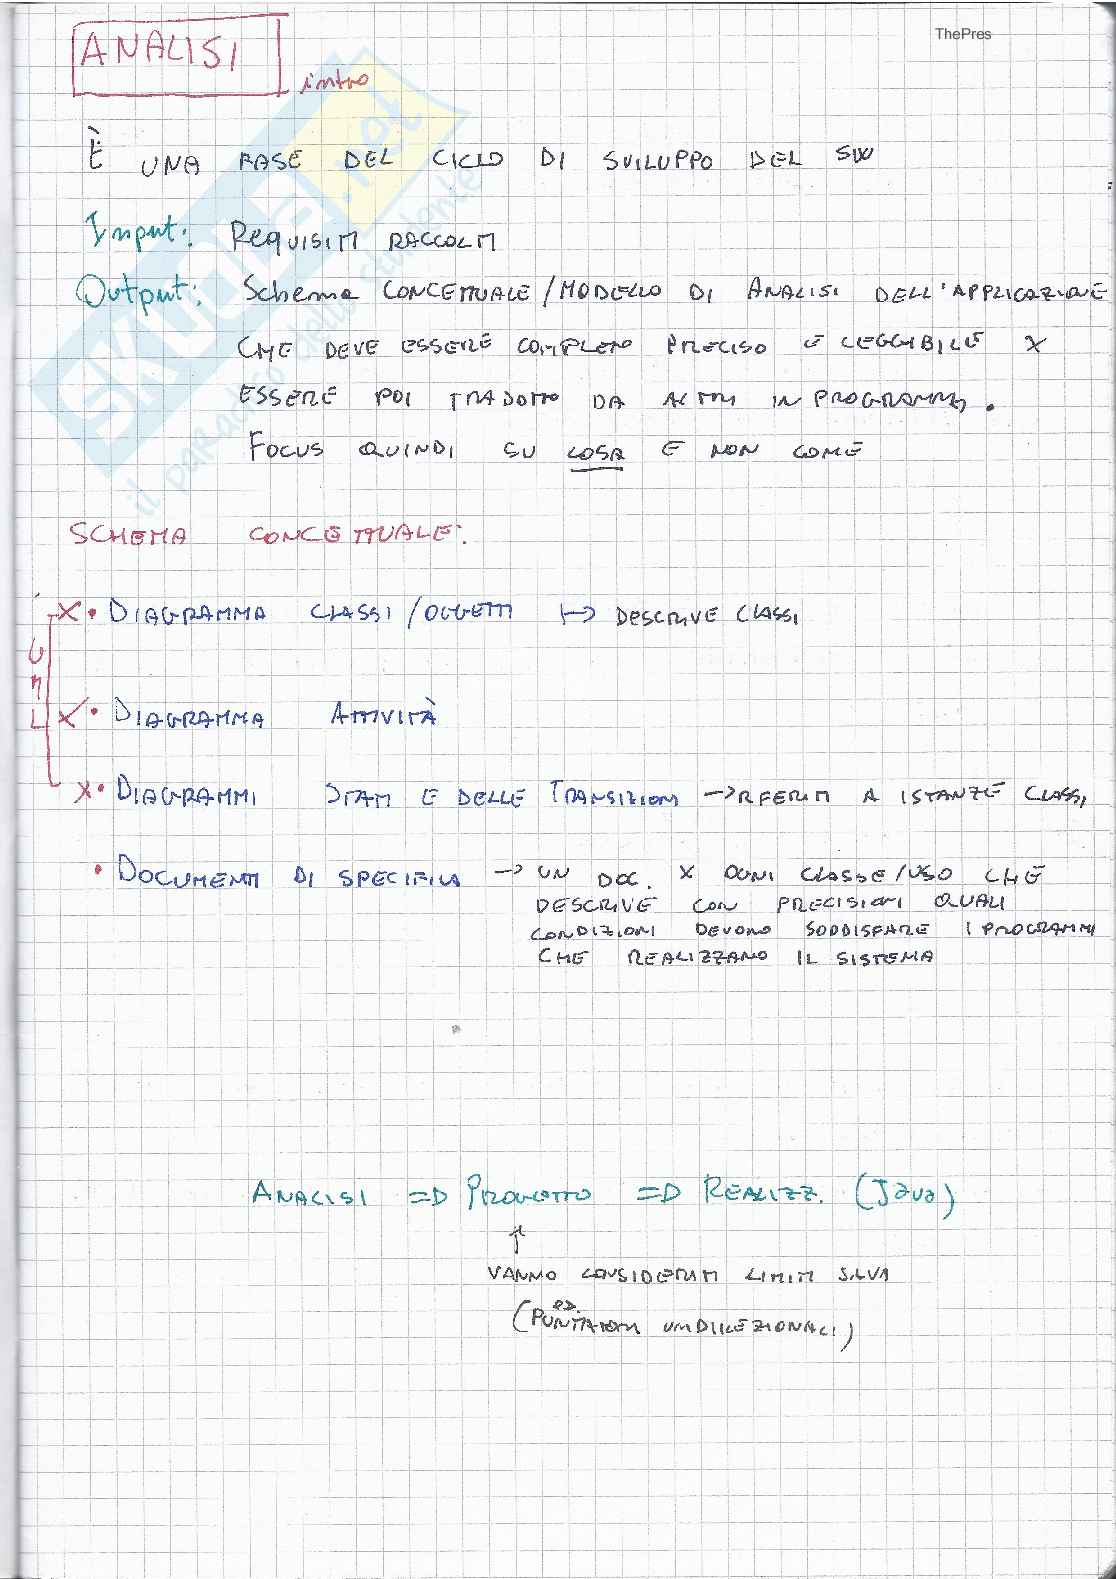 ThePres
ANALISI
intro
È UNA FASE DEL CICLO DI SVILUPPO DEL SW
Input: REQUISITI RACCOLTI
Output: SCHEMA CONCETTUALE/MODELLO DI ANALISI DELL'APPLICAZIONE
CHE DEVE ESSERE COMPLETO PRECISO E LEGGIBILE X
ESSERE POI TRADOTTO DA ALTRI IN PROGRAMMA.
FOCUS QUINDI SU COSA E NON COME
SKUOLA.net
il paradiso dello studente
SCHEMA CONCETTUALE:
UML
X • DIAGRAMMA CLASSI/OGGETTI ↦ DESCRIVE CLASSI
X • DIAGRAMMA ATTIVITÀ
X • DIAGRAMMI STATI E DELLE TRANSIZIONI → RIFERITI A ISTANZE CLASSI
• DOCUMENTI DI SPECIFICA → UN DOC. X OGNI CLASSE/USO CHE
DESCRIVE CON PRECISIONI QUALI
CONDIZIONI DEVONO SODDISFARE I PROGRAMMI
CHE REALIZZANO IL SISTEMA
ANALISI => PROGETTO => REALIZZ. (Java)
↑
VANNO CONSIDERATI LIMITI JAVA
(ES. PUNTATORI UNIDIREZIONALI)